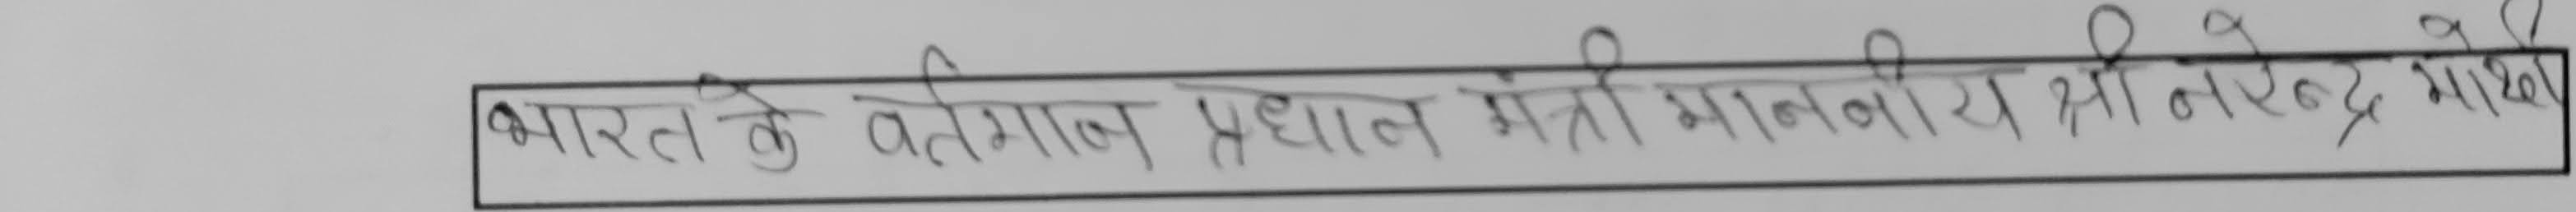 भारत के वर्तमान प्रधान मंत्री माननीय श्री नरेन्द्र मोदी